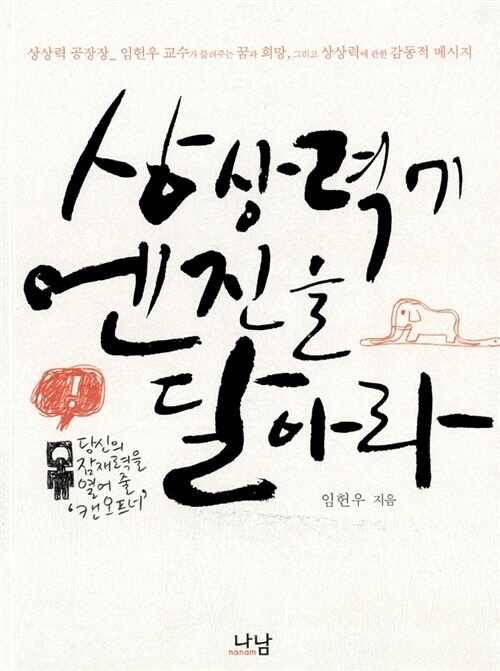 상상력 공장장_ 임헌우 교수가 들려주는 꿈과 희망, 그리고 상상력에 관한 감동적 메시지
상상력에
엔진을
달아라
!
당신의
잠재력을
열어 줄
'캔 오프너'
임헌우 지음
나남
nanam